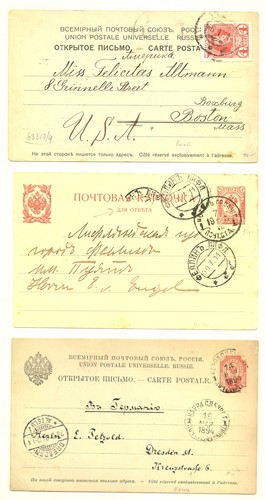 ВСЕМІРНЫЙ ПОЧТОВЫЙ СОЮЗЪ. РОССІЯ.
UNION POSTALE UNIVERSELLE. RUSSIE.
ОТКРЫТОЕ ПИСЬМО. — CARTE POSTALE.
Америка
Miss Felicitas Altmann
8 Grinnelle Street
Roxburg
Boston
Mass
U.S.A.
На этой сторонѣ пишется только адресъ. — Côté réservé exclusivement à l'adresse.
ПОЧТОВАЯ КАРТОЧКА
ДЛЯ ОТВѢТА
Лифляндская гу
городъ Феллинъ
ФЕЛЛИНЪ ЛИФЛ.
Herrn E. v. Engel
ВСЕМІРНЫЙ ПОЧТОВЫЙ СОЮЗЪ. РОССІЯ.
UNION POSTALE UNIVERSELLE. RUSSIE.
ОТКРЫТОЕ ПИСЬМО. — CARTE POSTALE.
Въ Германію
Herrn E. Petzold
Dresden
Kreuzstrasse 6.
DRESDEN
1894
На этой сторонѣ пишется только адресъ. — Côté réservé exclusivement à l'adresse.